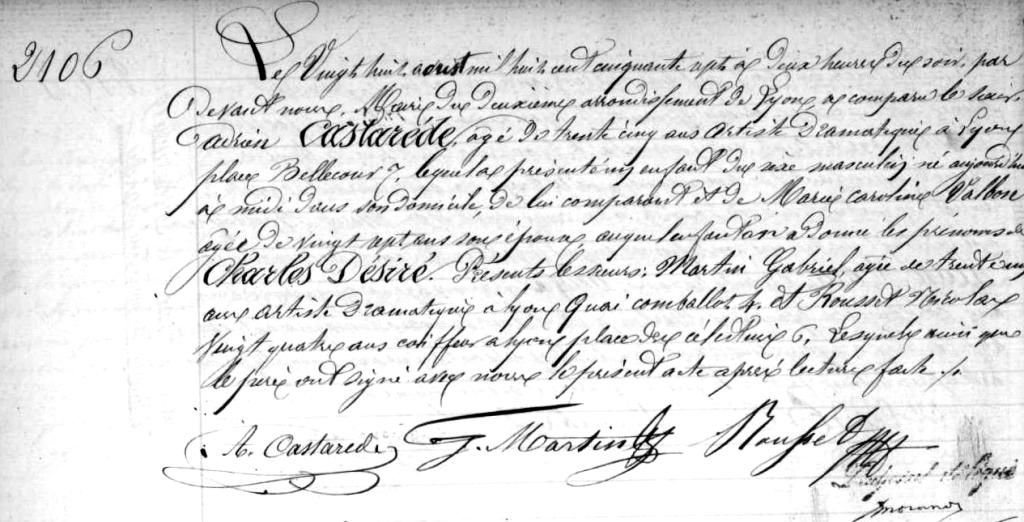 2106
Le Vingt huit aoust mil huit cent cinquante sept à deux heures du soir, par
Devant nous, Maire du deuxième arrondissement de Lyon, a comparu le sieur
adrien Castarède, agé de trente cinq ans artiste Dramatique à Lyon
place Bellecour 7, lequel a présenté un enfant du sexe masculin, né aujourd'hui
à midi dans son domicile, de lui comparant et de Marie caroline Valbon
agée de vingt sept ans son épouse, auquel enfant on a donné les prénoms de
Charles Désiré. Présents les sieurs: Martin Gabriel, agé de trente cinq
ans artiste Dramatique à Lyon Quai 4, et Rousset
Vingt quatre ans coiffeur à Lyon place des célestins 6, Lesquels ainsi que
le père ont signé avec nous le présent acte après lecture faite ./.
A. Castarede G. Martin Rousset